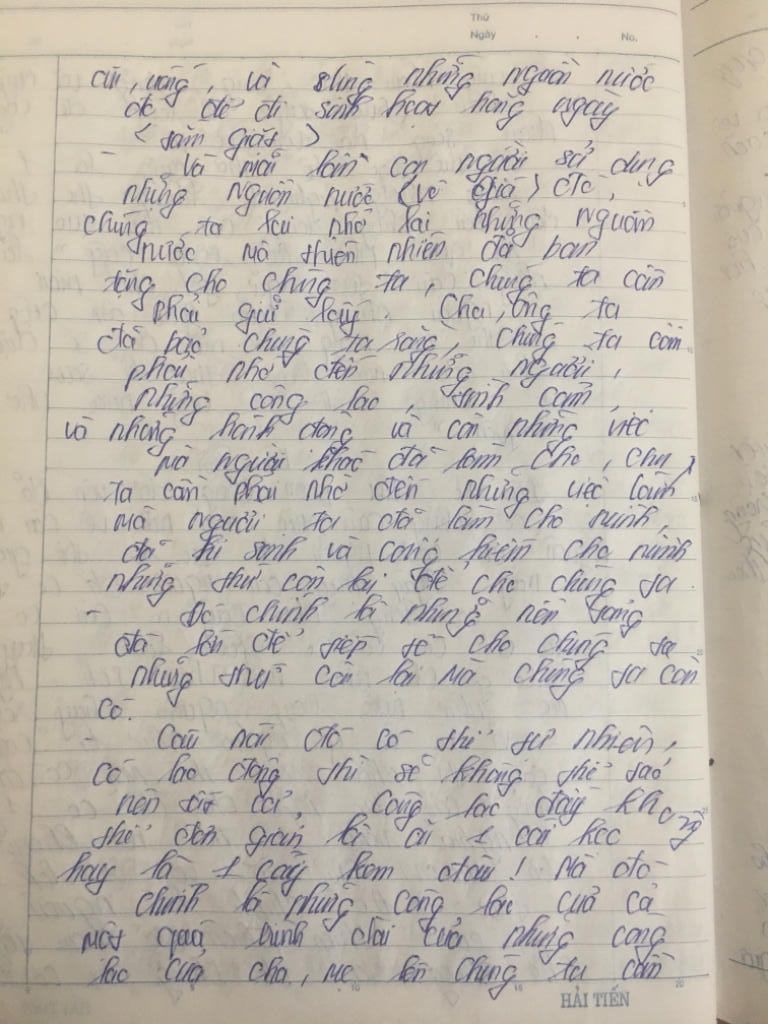 Thứ
Ngày . . No.
ăn, uống, và dùng những nguồn nước
đó để đi sinh hoạt hằng ngày
< tắm giặt >
- Và mỗi lần con người sử dụng
những nguồn nước (vô giá) đó,
chúng ta lại nhớ lại những nguồn
nước mà thiên nhiên đã ban
tặng cho chúng ta, chúng ta cần
phải giữ lấy. Cha, ông ta
đã bảo chúng ta rằng, chúng ta cần
phải nhớ đến những người,
những công lao, tình cảm,
và những hành động và cả những việc
mà người khác đã làm cho, chúng
ta cần phải nhớ đến những việc làm
mà người ta đã làm cho mình,
đã hi sinh và cống hiến cho mình
những thứ còn lại để cho chúng ta.
- Đó chính là những nền tảng
đã lớn để tiếp sức cho chúng ta
những thứ còn lại mà chúng ta còn
có.
- Câu nói đó có thể tự nhiên,
có lao động thì sẽ không thể tạo
nên tất cả, công lao đây không
thể đơn giản là cái 1 cái kẹo
hay là 1 cây kem đâu! Mà đó
chính là những công lao của cả
một quá trình dài của những công
lao của cha, mẹ lên chúng ta cần
HẢI TIẾN